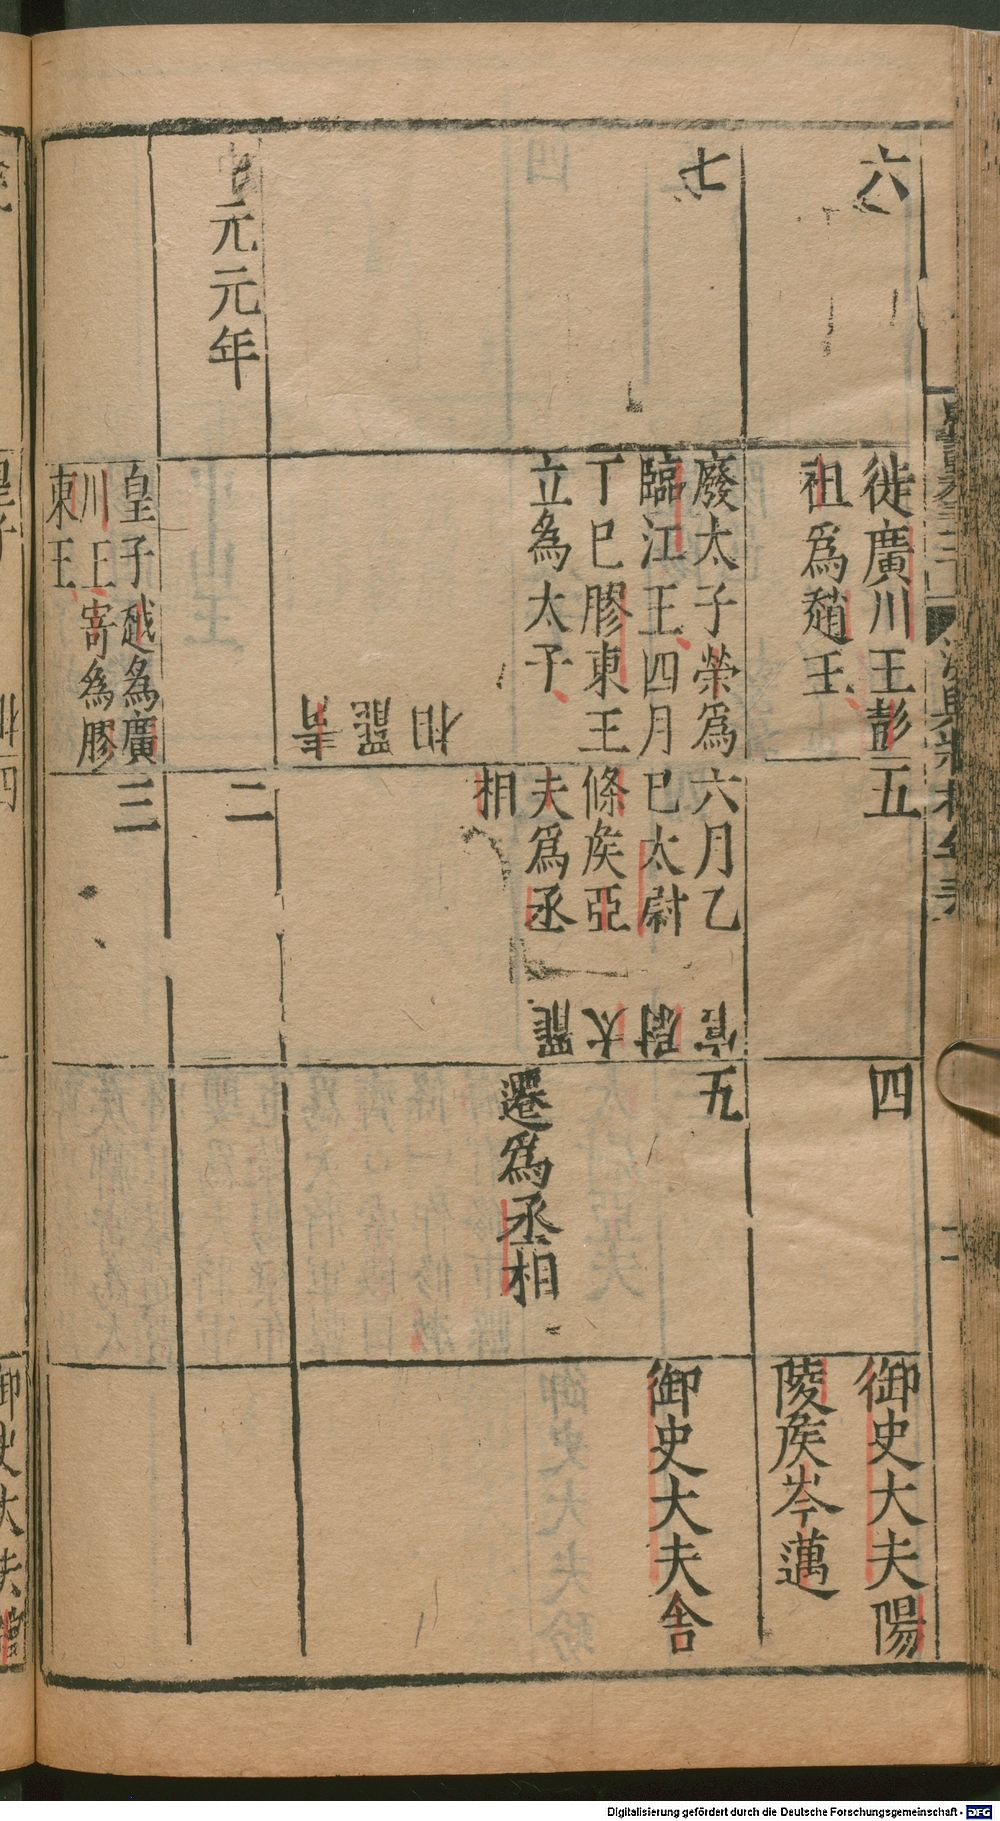 六
徙廣川王彭
祖爲趙王
五
四
御史大夫陽
陵矦岑邁
七
廢太子榮爲
臨江王四月
丁巳膠東王
立爲太子
青翟罷相
六月乙
巳太尉
條矦亞
夫爲丞
相
罷太尉官
五
遷爲丞相
御史大夫舍
中元元年
二
皇子越為廣
川王寄為膠
東王
三
Digitalisierung gefördert durch die Deutsche Forschungsgemeinschaft - DFG